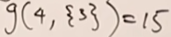 g(4, {3}) = 15